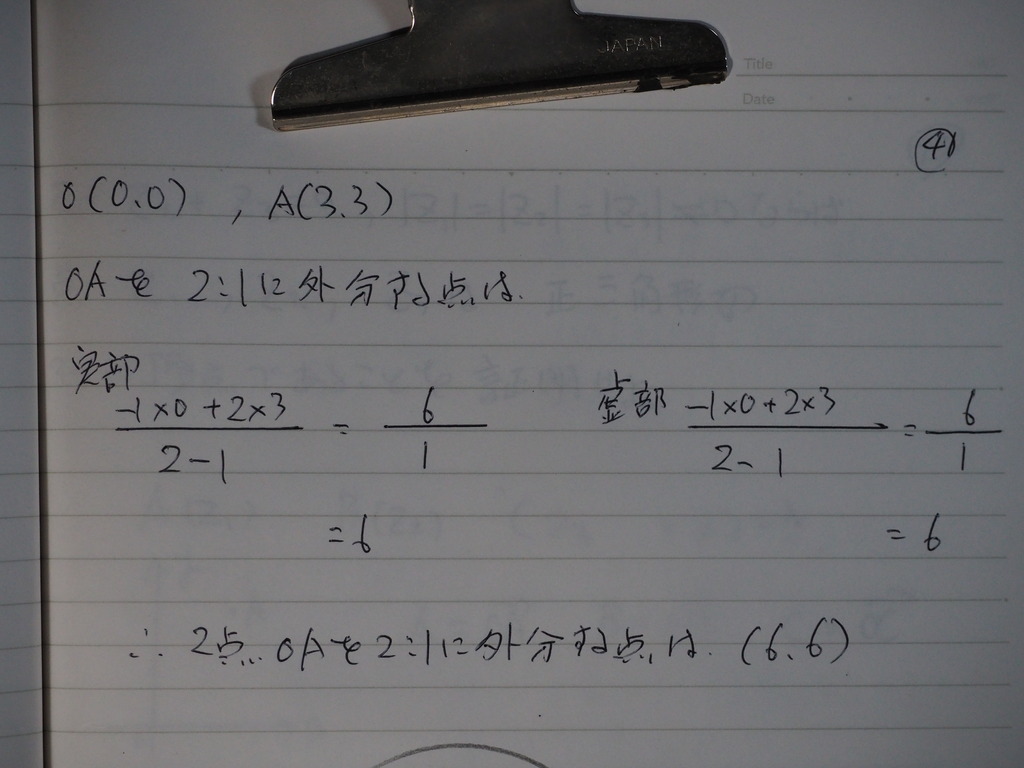 JAPAN
Title
Date
O(0.0) , A(3.3)
OAを 2:1に外分する点は.
実部 -1×0+2×3/2-1 = 6/1
=6
虚部 -1×0+2×3/2-1 = 6/1
=6
∴ 2点.. OAを2:1に外分する点は. (6.6)